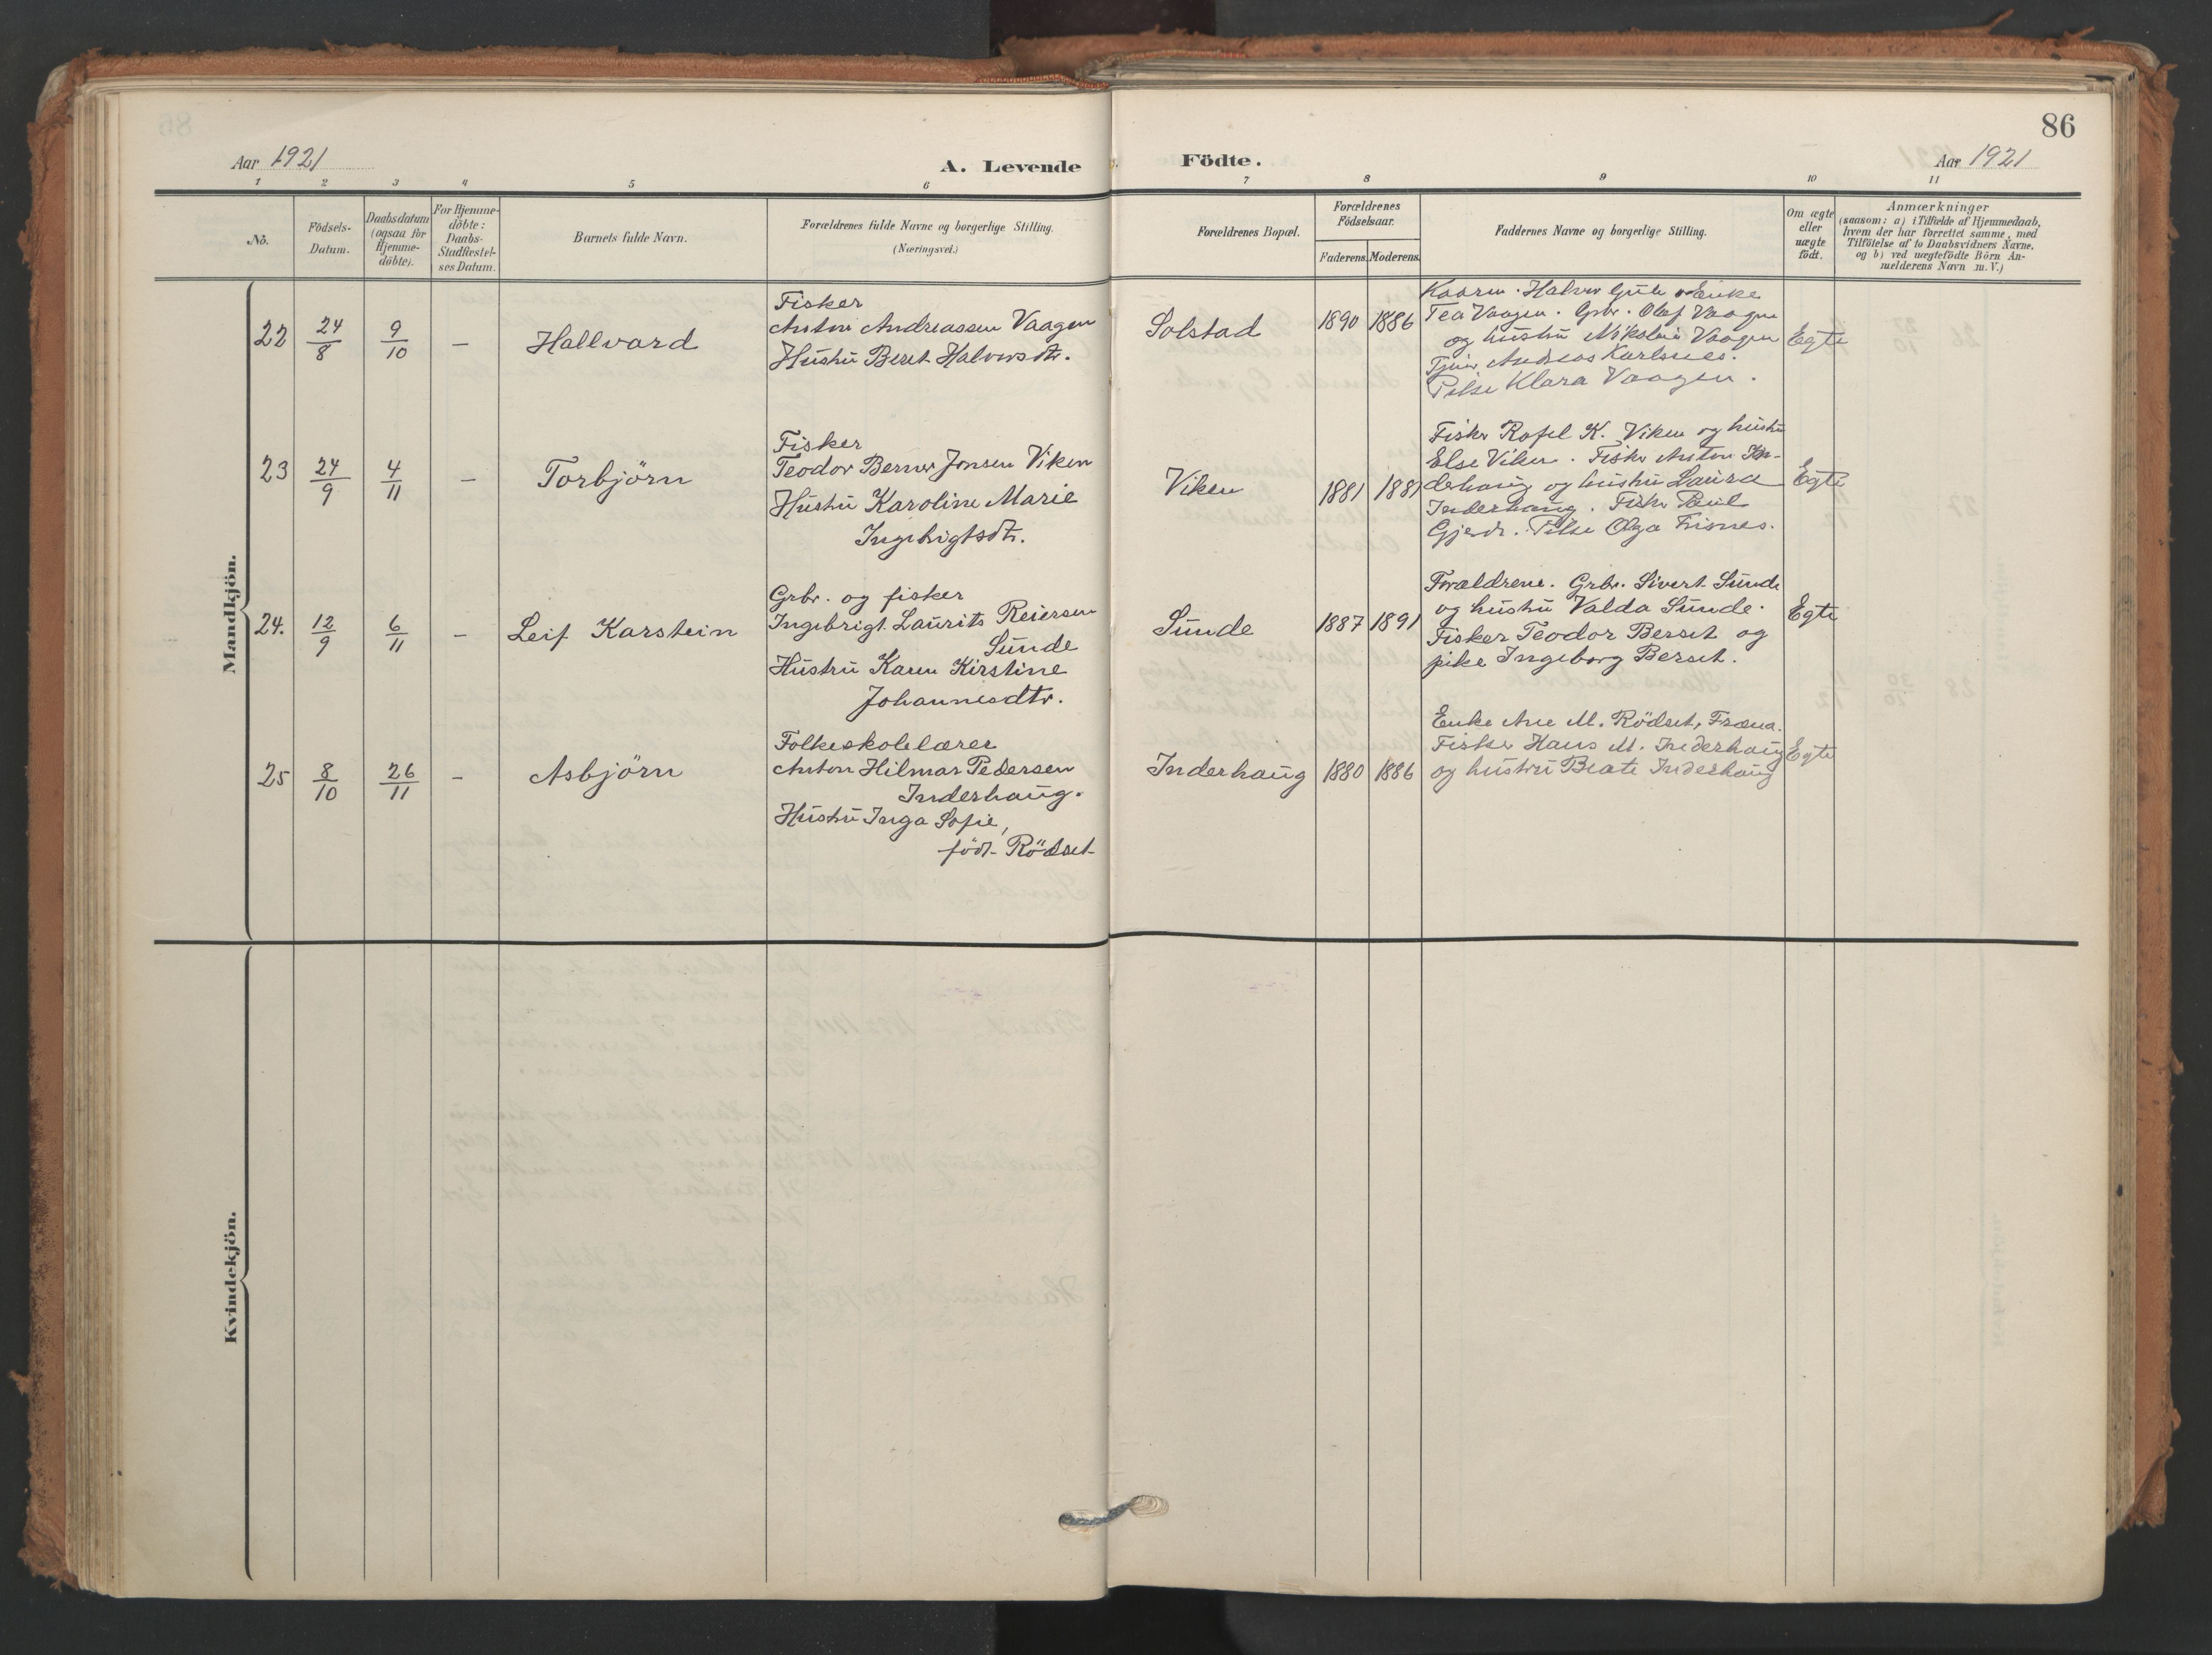 86
Aar 1921
A. Levende Födte.
Aar 1921
1 2 3 4 5 6 7 8 9 10 11
No.
Födsels-
Datum.
Daabsdatum
(ogsaa for
Hjemme-
döbte).
For Hjemme-
döbte:
Daabs-
Stadfæstel-
ses Datum.
Barnets fulde Navn.
Forældrenes fulde Navne og borgerlige Stilling.
(Næringsvei.)
Forældrenes Bopæl.
Forældrenes
Födselsaar.
Faderens. Moderens.
Faddernes Navne og borgerlige Stilling.
Om ægte
eller
uægte
födt.
Anmærkninger
(saasom: a) i Tilfælde af Hjemmedaab,
hvem der har forrettet samme, med
Tilföielse af to Daabsvidners Navne,
og b) ved uægtefödte Börn An-
melderens Navn m. V.)
Mandkjön.
22 24/8 9/10 – Hallvard
Fisker
Anton Andreassen Vaagen
Hustru Beret Halvorsdtr.
Solstad 1890 1886
Tea Vaagen. Grbr. Olaf Vaagen
og hustru Nikoline Vaagen
Andreas Karlsnes.
Pike Klara Vaagen.
Egte
23 24/9 4/11 – Torbjörn
Fisker
Teodor Berner Jonsen Viken
Hustru Karoline Marie
Ingebrigtsdtr.
Viken 1881 1881
Fisker Rafel K. Viken og hustru
Else Viken. Fisker Anton In-
derhaug og hustru Laura
Inderhaug. Fisker Paul
Gjerde. Pike Olga Frisnes.
Egte
24. 12/9 6/11 – Leif Karstein
Grbr. og fisker
Ingebrigt Laurits Reiersen
Sunde
Hustru Karen Kirstine
Johannesdtr.
Sunde 1887 1891
Forældrene. Grbr. Sivert Sunde
og hustru Valda Sunde.
Fisker Teodor Berset og
pike Ingeborg Berset.
Egte
25 8/10 26/11 – Asbjörn
Folkeskolelærer
Anton Hilmar Pedersen
Inderhaug.
Hustru Inga Sofie,
född. Rödset
Inderhaug 1880 1886
Enke Ane M. Rödset, Fræna.
Fisker Hans M. Inderhaug
og hustru Beate Inderhaug
Egte
Kvindekjön.